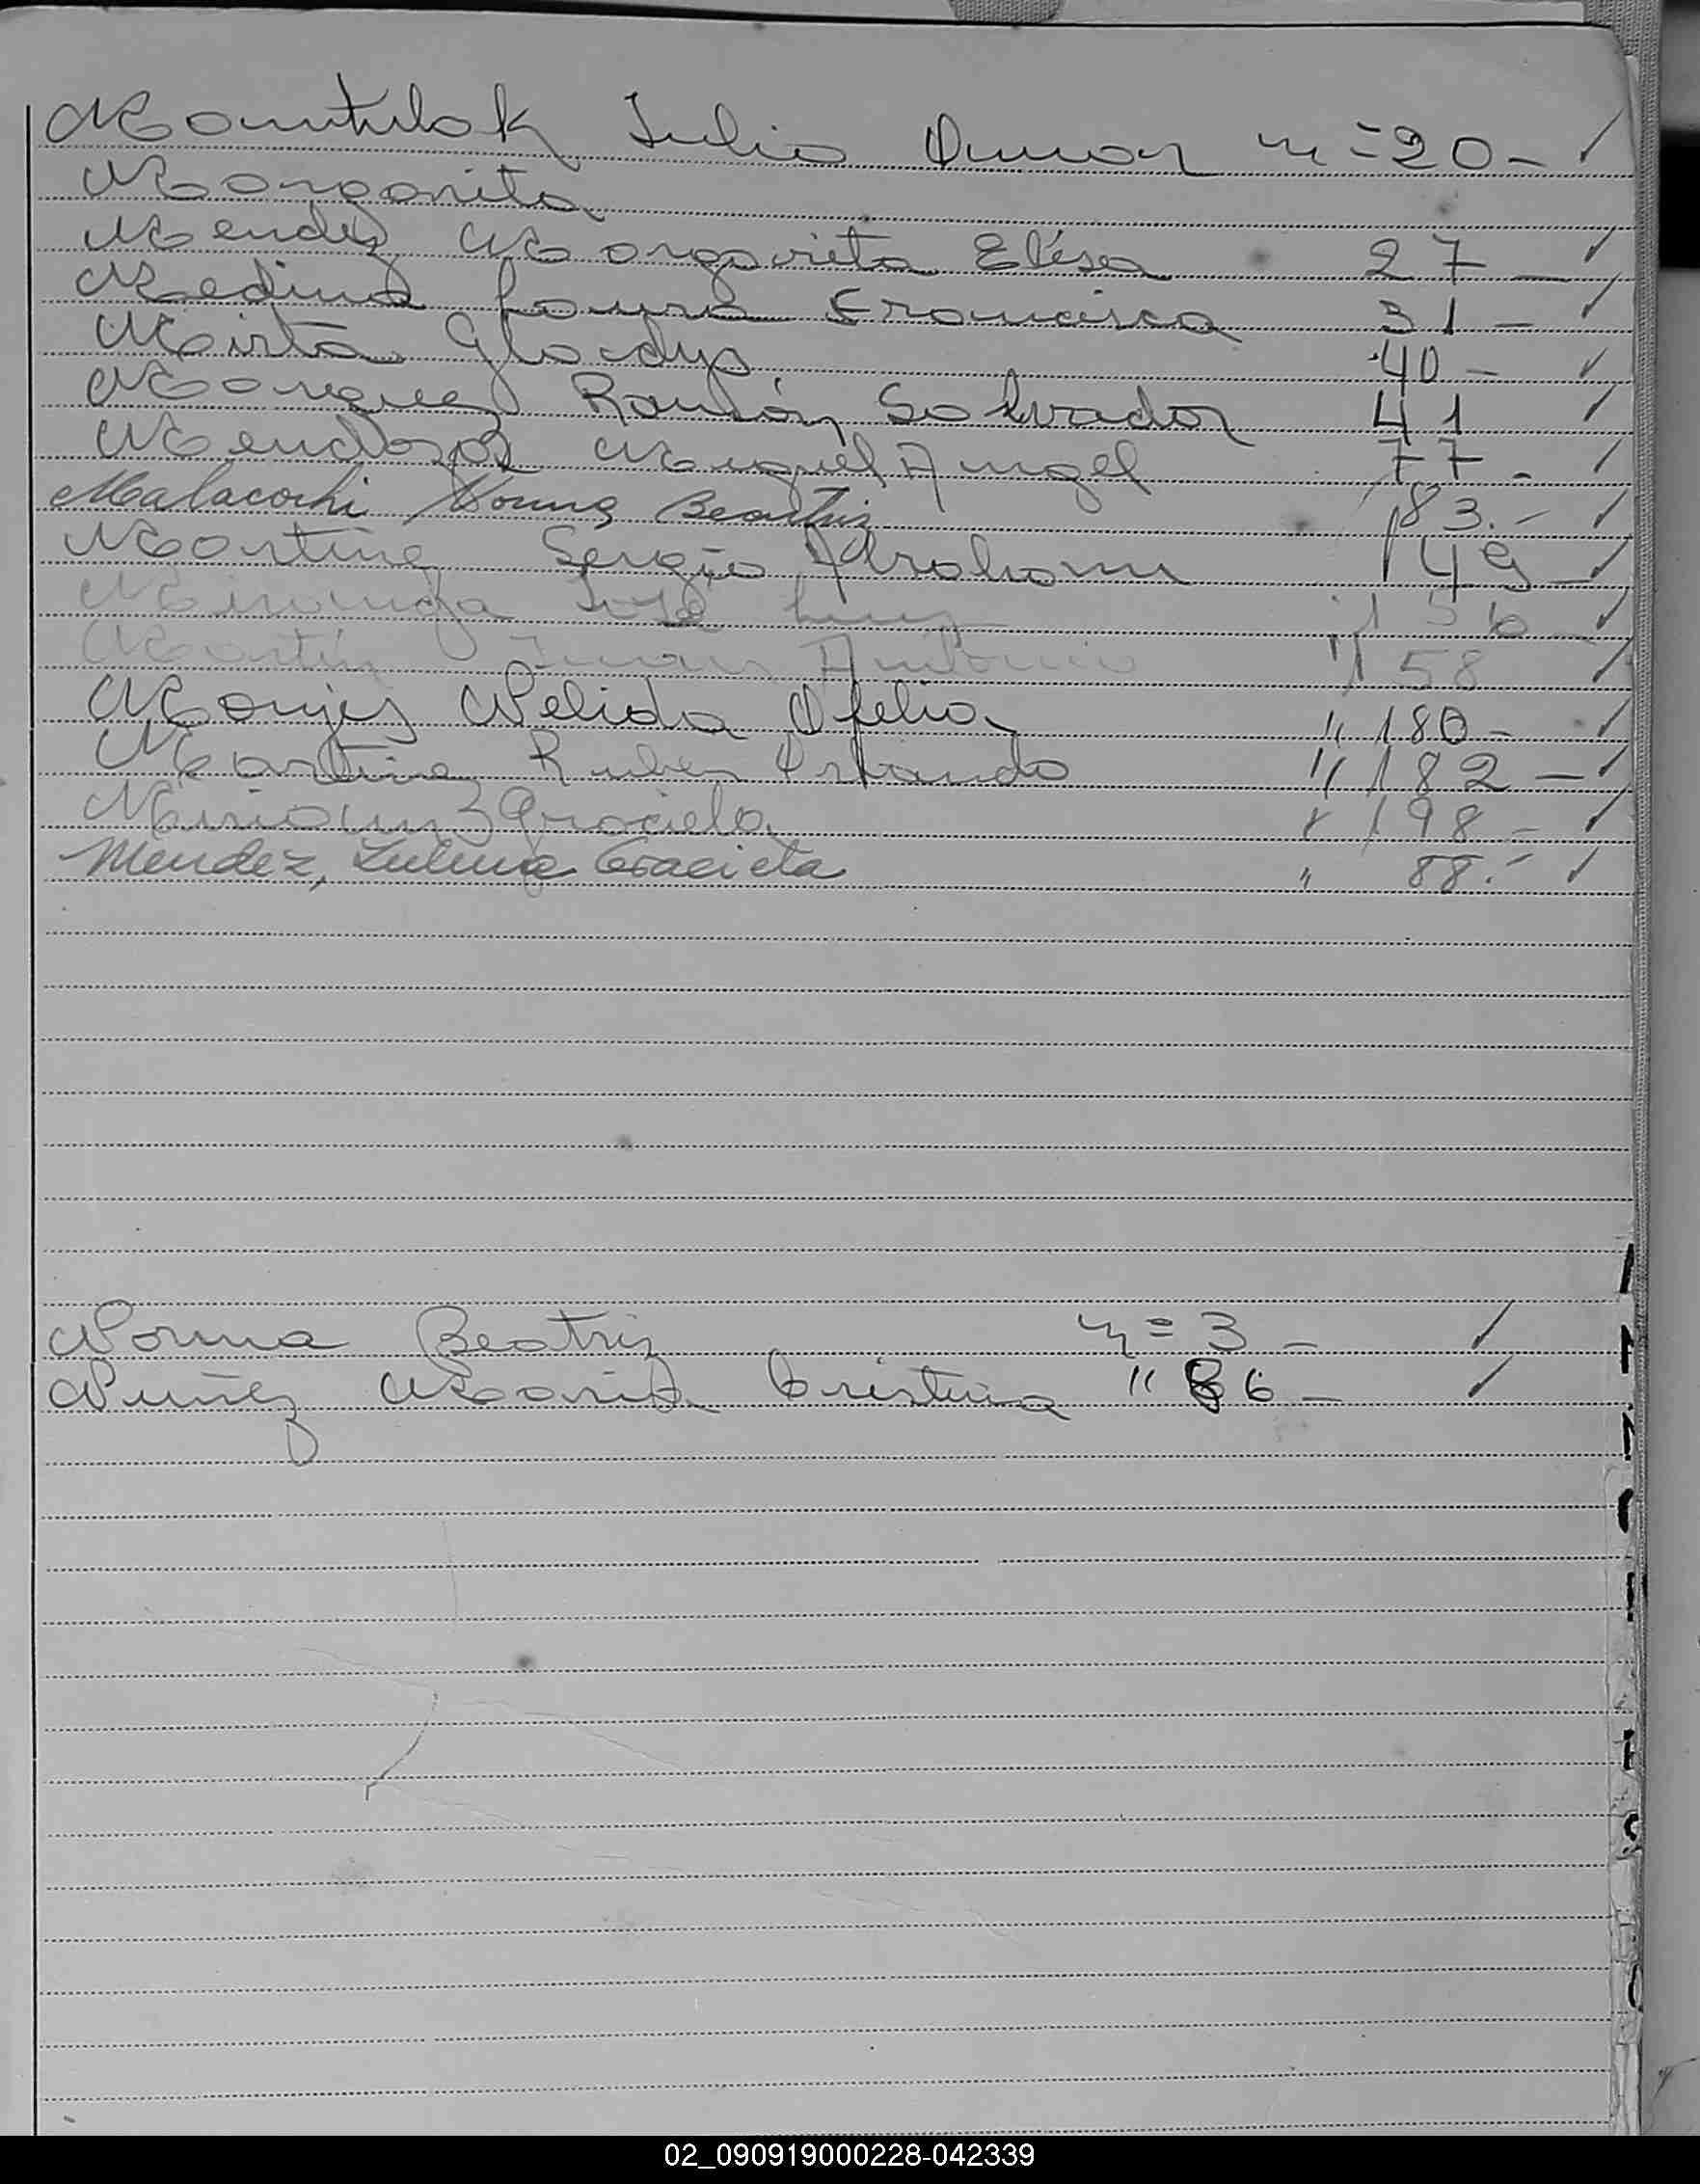 Mantulak Julio Omar n= 20 - ✓
Margarita
Mendez Margarita Elisa 27 - ✓
Medina Laura Francisca 31 - ✓
Mirta Gladys 40 - ✓
Marquez Ramón Salvador 41 ✓
Mendoza Miguel Angel 77 - ✓
Malacochi Norma Beatriz 83.- ✓
Martinez Sergio Abraham 149 - ✓
Miranda José Luis 156 - ✓
Martín Juan Antonio " 158 ✓
Monjes Nelida Ofelia " 180 - ✓
Martinez Ruben Orlando " 182 - ✓
Miriam Graciela " 198 - ✓
Mendez, Zulma Graciela " 88.- ✓
Norma Beatriz n= 3 - ✓
Nuñez Maria Cristina " 86 - ✓
02_090919000228-042339